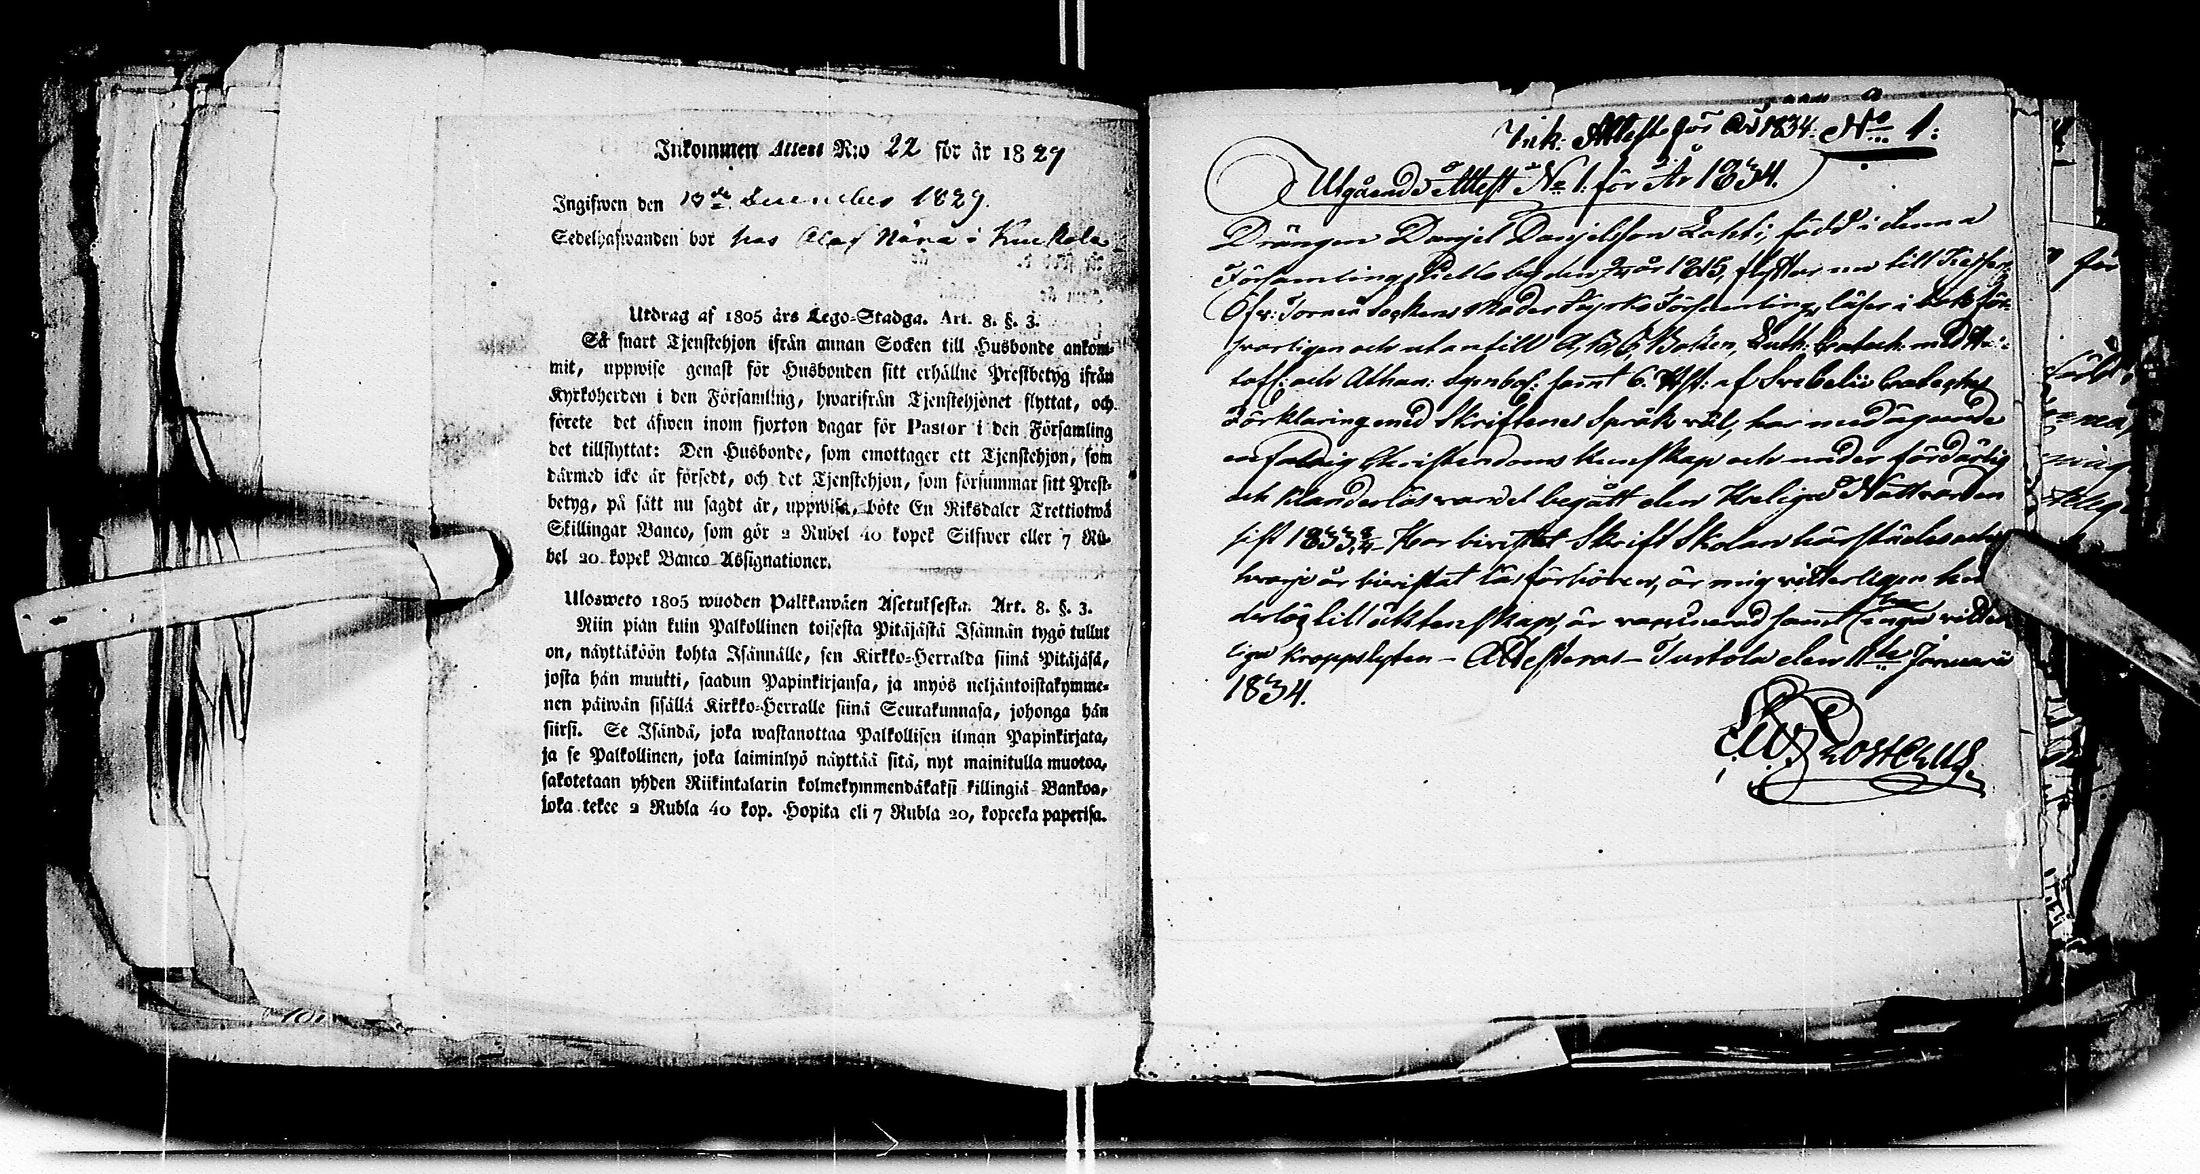 Inkommen Attest N:o 22 för år 1829
Ingifwen den 13de December 1829.
Sedelhafwanden bor hos Olof Nära i Kuckola
Utdrag af 1805 års Lego-Stadga. Art. 8. §. 3.
Så snart Tjenstehjon ifrån annan Socken till Husbonde ankom-
mit, uppwise genast för Husbonden sitt erhållne Prestbetyg ifrån
Kyrkoherden i den Församling, hwarifrån Tjenstehjonet flyttat, och
förete det äfwen inom fjorton dagar för Pastor i den Församling
det tillflyttat: Den Husbonde, som emottager ett Tjenstehjon, som
därmed icke är försedt, och det Tjenstehjon, som försummar sitt Prest-
betyg, på sätt nu sagdt är, uppwisa, böte En Riksdaler Trettiotwå
Skillingar Banco, som gör 2 Rubel 40 kopek Silfwer eller 7 Ru-
bel 20 kopek Banco Assignationer.
Ulosweto 1805 wuoden Palkkawäen Asetuksesta. Art. 8. §. 3.
Niin pian kuin Palkollinen toisesta Pitäjästä Isännän tygö tullut
on, näyttäköön kohta Isännälle, sen Kirkko-Herralda siinä Pitäjäsä,
josta hän muutti, saadun Papinkirjansa, ja myös neljäntoistakymme-
nen päiwän sisällä Kirkko-Herralle siinä Seurakunnasa, johonga hän
siirsi. Se Isändä, joka wastanottaa Palkollisen ilman Papinkirjata,
ja se Palkollinen, joka laiminlyö näyttää sitä, nyt mainitulla muotoa,
sakotetaan yhden Riikintalarin kolmekymmendäkaksi killingiä Bankoa,
joka tekee 2 Rubla 40 kop. Hopita eli 7 Rubla 20, kopeeka paperisa.
Ink. Attest för år 1834. No 1:
Utgående Attest No 1: för År 1834.
Drängen Danjel Danjelsson Lahti, född i denna
Församling by den år 1815, flyttar nu till
Öfv: Torneå Sockens Moder Kyrko Församling, läser i bok för-
svarligen och utantill A, B, C, Boken, Luth. Catech. med Hu:
tafl: och Athan: Symbol: samt 6. af Svebelii Cateches
Förklaring med Skriftenes Språk väl, har med ägande
enfaldig Christendoms kunskap och under
och klanderlös vandel begått den Heliga Nattvarden
sist 1833 Har bivistat Skrift Skolan härstädes och
hvarje år bivistat läsförhören, är mig veterligen hin
derlös till äktenskap, är vaccinerad samt inga
liga kroppslyten – Attesteras – Turtola den 11te Januarii
1834.